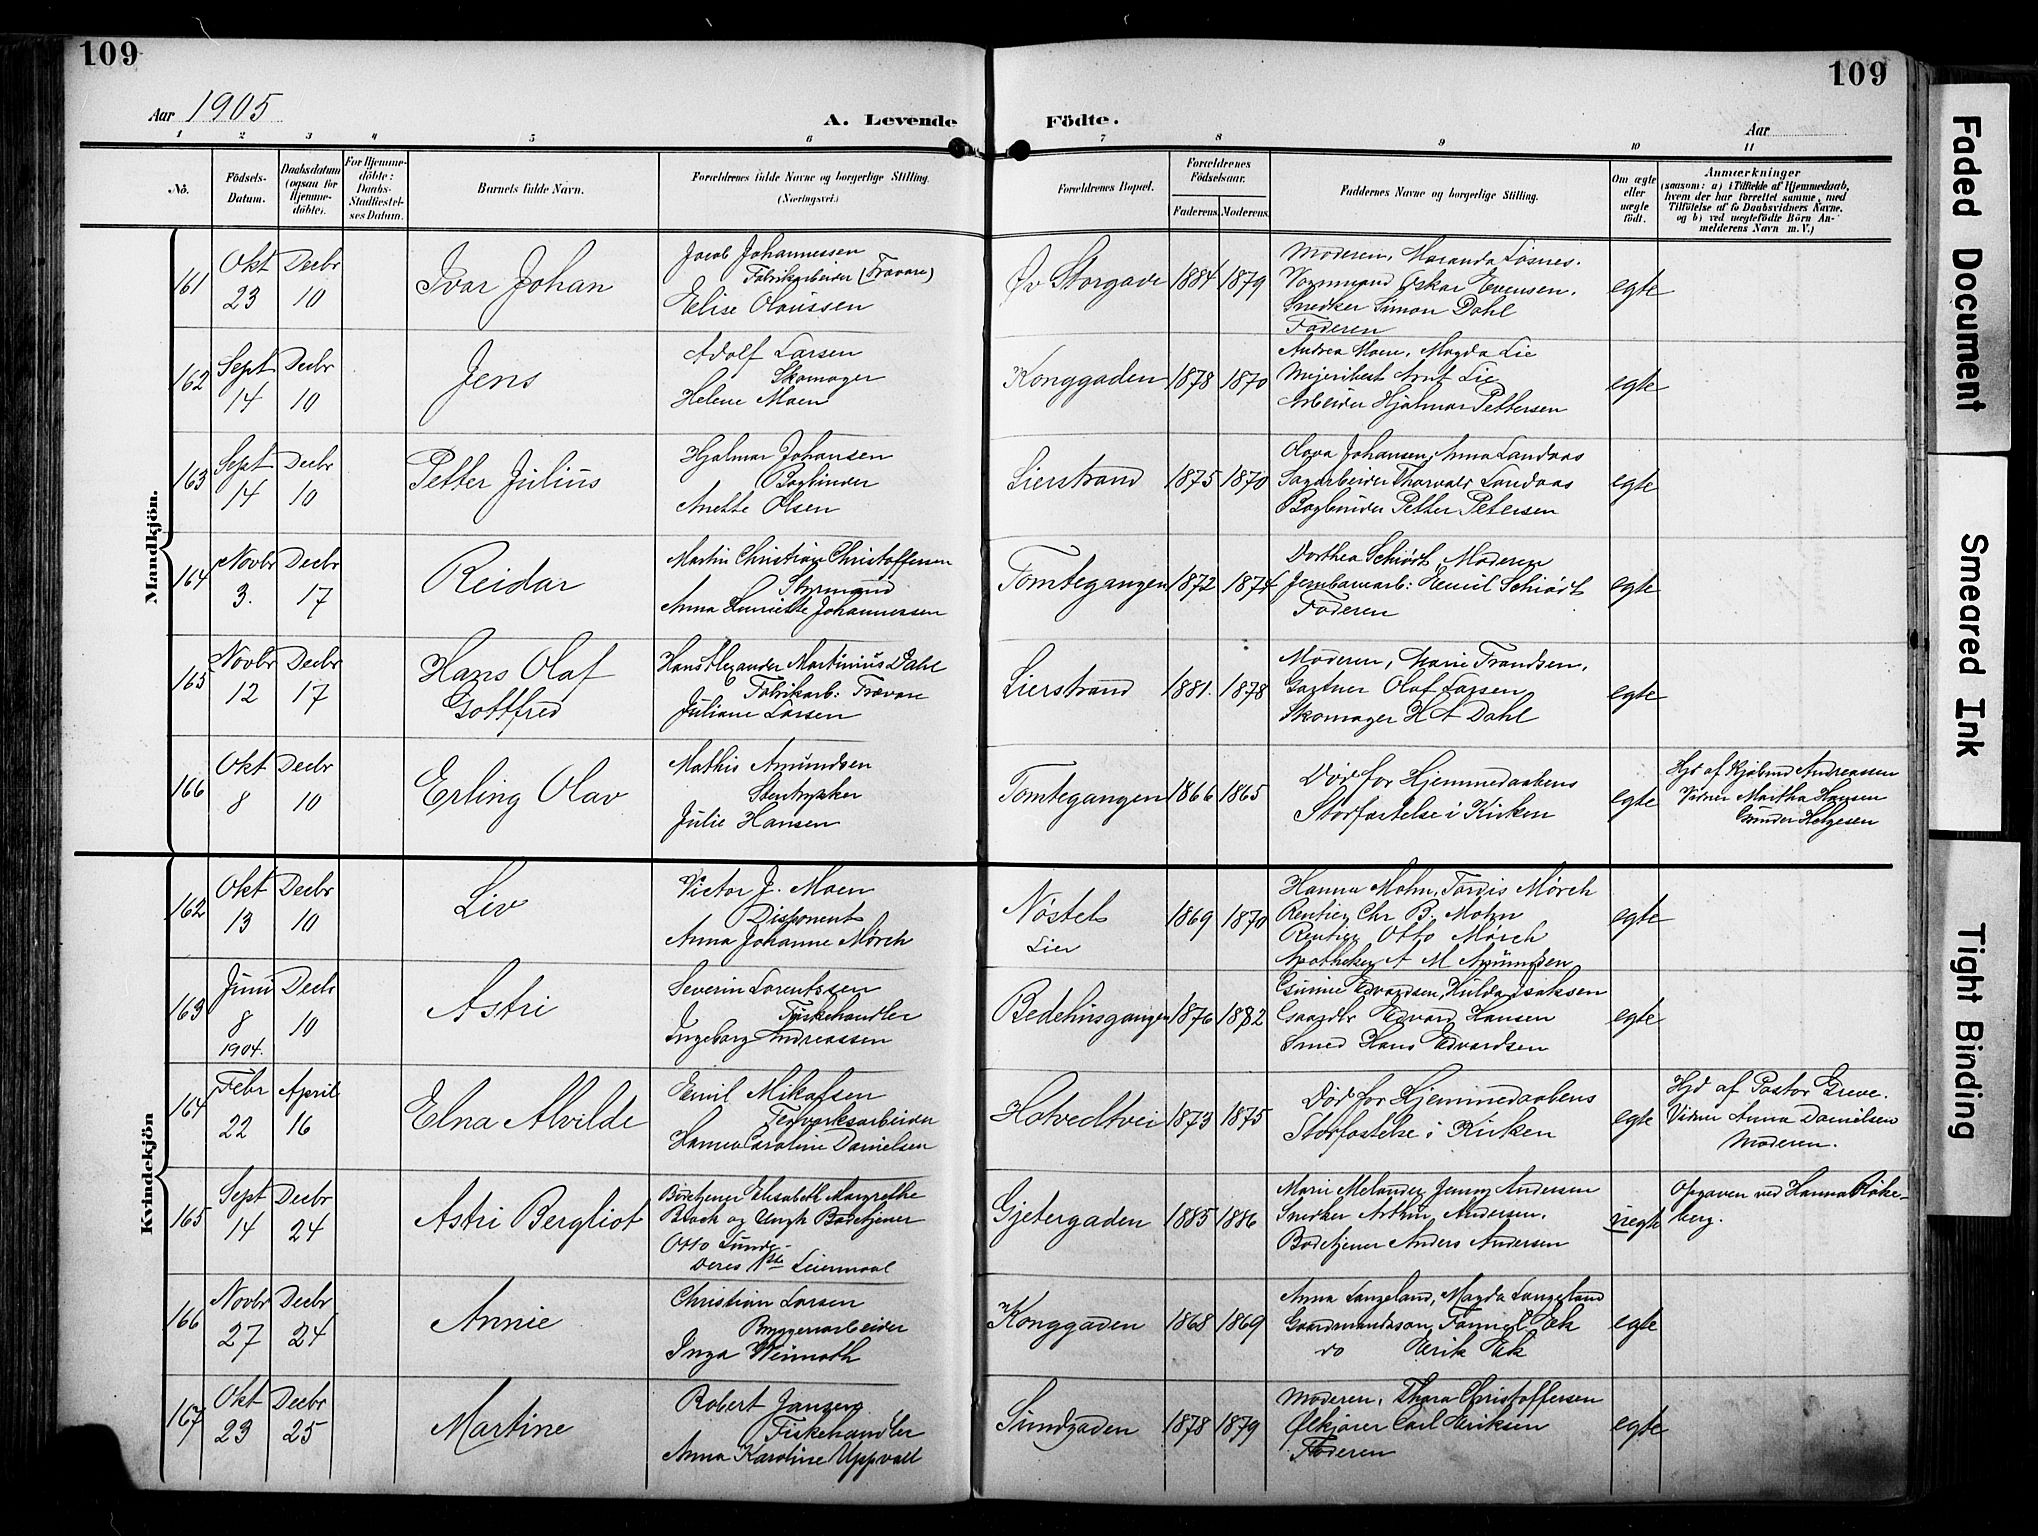 109
109
Aar 1905
A. Levende Födte.
Aar
1 2 3 4 5 6 7 8 9 10 11
No.
Födsels-
Datum.
Daabsdatum
(ogsaa for
Hjemme-
döbte).
For Hjemme-
döbte:
Daabs-
Stadfæstel-
ses Datum.
Barnets fulde Navn.
Forældrenes fulde Navne og borgerlige Stilling.
(Næringsvei.)
Forældrenes Bopæl.
Forældrenes
Födselsaar.
Faderens.
Moderens.
Faddernes Navne og borgerlige Stilling.
Om ægte
eller
uægte
födt.
Anmærkninger
(saasom: a) i Tilfælde af Hjemmedaab,
hvem der har forrettet samme, med
Tilföielse af to Daabsvidners Navne,
og b) ved uægtefödte Börn An-
melderens Navn m. V.)
Mandkjön.
161
Okt
23
Decbr
10
Ivar Johan
Jacob Johannessen
Fabrikarbeider (Trævare)
Elise Olaussen
Øv Storgade
1884
1879
Moderen, Haranda Løsnes.
Vognmand Oskar Evensen.
Snedker Simon Dahl
Faderen
egte
162
Sept
14
Decbr
10
Jens
Adolf Larsen
Skomager
Helene Moen
Konggaden
1878
1870
Andrea Moen, Magda Lie
Meieribest Arnt Lie
Arbeider Hjalmar Pettersen
egte
163
Sept
14
Decbr
10
Petter Julius
Hjalmar Johansen
Bogbinder
Anette Olsen
Lierstrand
1875
1870
Olava Johansen, Anna Landaas
Sagarbeider Thorvald Landaas
Bogbinder Petter Petersen
egte
164
Novbr
3.
Decbr
17
Reidar
Martin Christian Christoffersen
Styrmand
Anna Henriette Johannessen
Tomtegangen
1872
1874
Dorthea Schiødt, Moderen
Jernbanearb: Emil Schiødt
Faderen
egte
165
Novbr
12
Decbr
17
Hans Olaf
Gottfred
Hans Alexander Martinius Dahl
Fabrikarb: Trævare
Juliane Larsen
Lierstrand
1881.
1878
Moderen, Marie Trandsen,
Gartner Olaf Larsen
Skomager H A Dahl
egte
166
Okt
8
Decbr
10
Erling Olav
Mathis Amundsen
Stentrykker
Julie Hansen
Tomtegangen
1866
1865
Død før Hjemmedaabens
Stadfæstelse i Kirken
egte
Hjd af Kjøbmd Andreassen
Vidner Martha Hansen
Gunder Helgesen
Kvindekjön
162
Okt
13
Decbr
10
Liv
Victor J. Moen
Disponent
Anna Johanne Mørch
Nøsted
Lier
1869
1870
Hanna Mohn, Tordis Mørch
Rentier Chr B. Mohn
Rentier Otto Mørch
Apotheker A M Amundsen
egte
163
Juni
8
1904.
Decbr
10
Astri
Severin Lorentssen
Fiskehandler
Ingeborg Andreassen
Bedehusgangen
1876
1882
Gunnie Edvardsen, Hulda Isaksen
Gaardbr Edvard Hansen
Smed Hans Edvardsen
egte
164
Febr
22
April
16
Elna Alvilde
Emil Mikalsen
Teglverksarbeider
Hanna Caroline Danielsen
Hotvedtvei
1873
1875
Død før Hjemmedaabens
Stadfæstelse i Kirken
egte
Hjd af Pastor Greve.
Vidner Anna Danielsen
Moderen.
165
Sept
14
Decbr
24
Astri Bergliot
Bodetjener Elisabeth Margrethe
Brock og Ungk Bodetjener
Otto Lunde
Deres 1ste Leiermaal
Gjetergaden
1885
1886
Marie Melander, Jenny Andersen
Snedker Arthur Andersen.
Bodetjener Anders Andersen
uegte
Opgaven ved Hanna Røke-
berg.
166
Novbr
27
Decbr
24
Annie
Christian Larsen
Bryggeriarbeider
Inga Weimoth
Konggaden
1868
1869
Anna Langeland, Magda Langeland
Gaardmandssøn Daniel Ek
do Erik Ek
egte
167
Okt
23
Decbr
25
Martine
Robert Jansen
Fiskehandler
Anna Karoline Uppvall
Sundgaden
1878
1879
Moderen, Thora Christoffersen
Ølkjører Carl Eriksen
Faderen
egte
Faded Document
Smeared Ink
Tight Binding